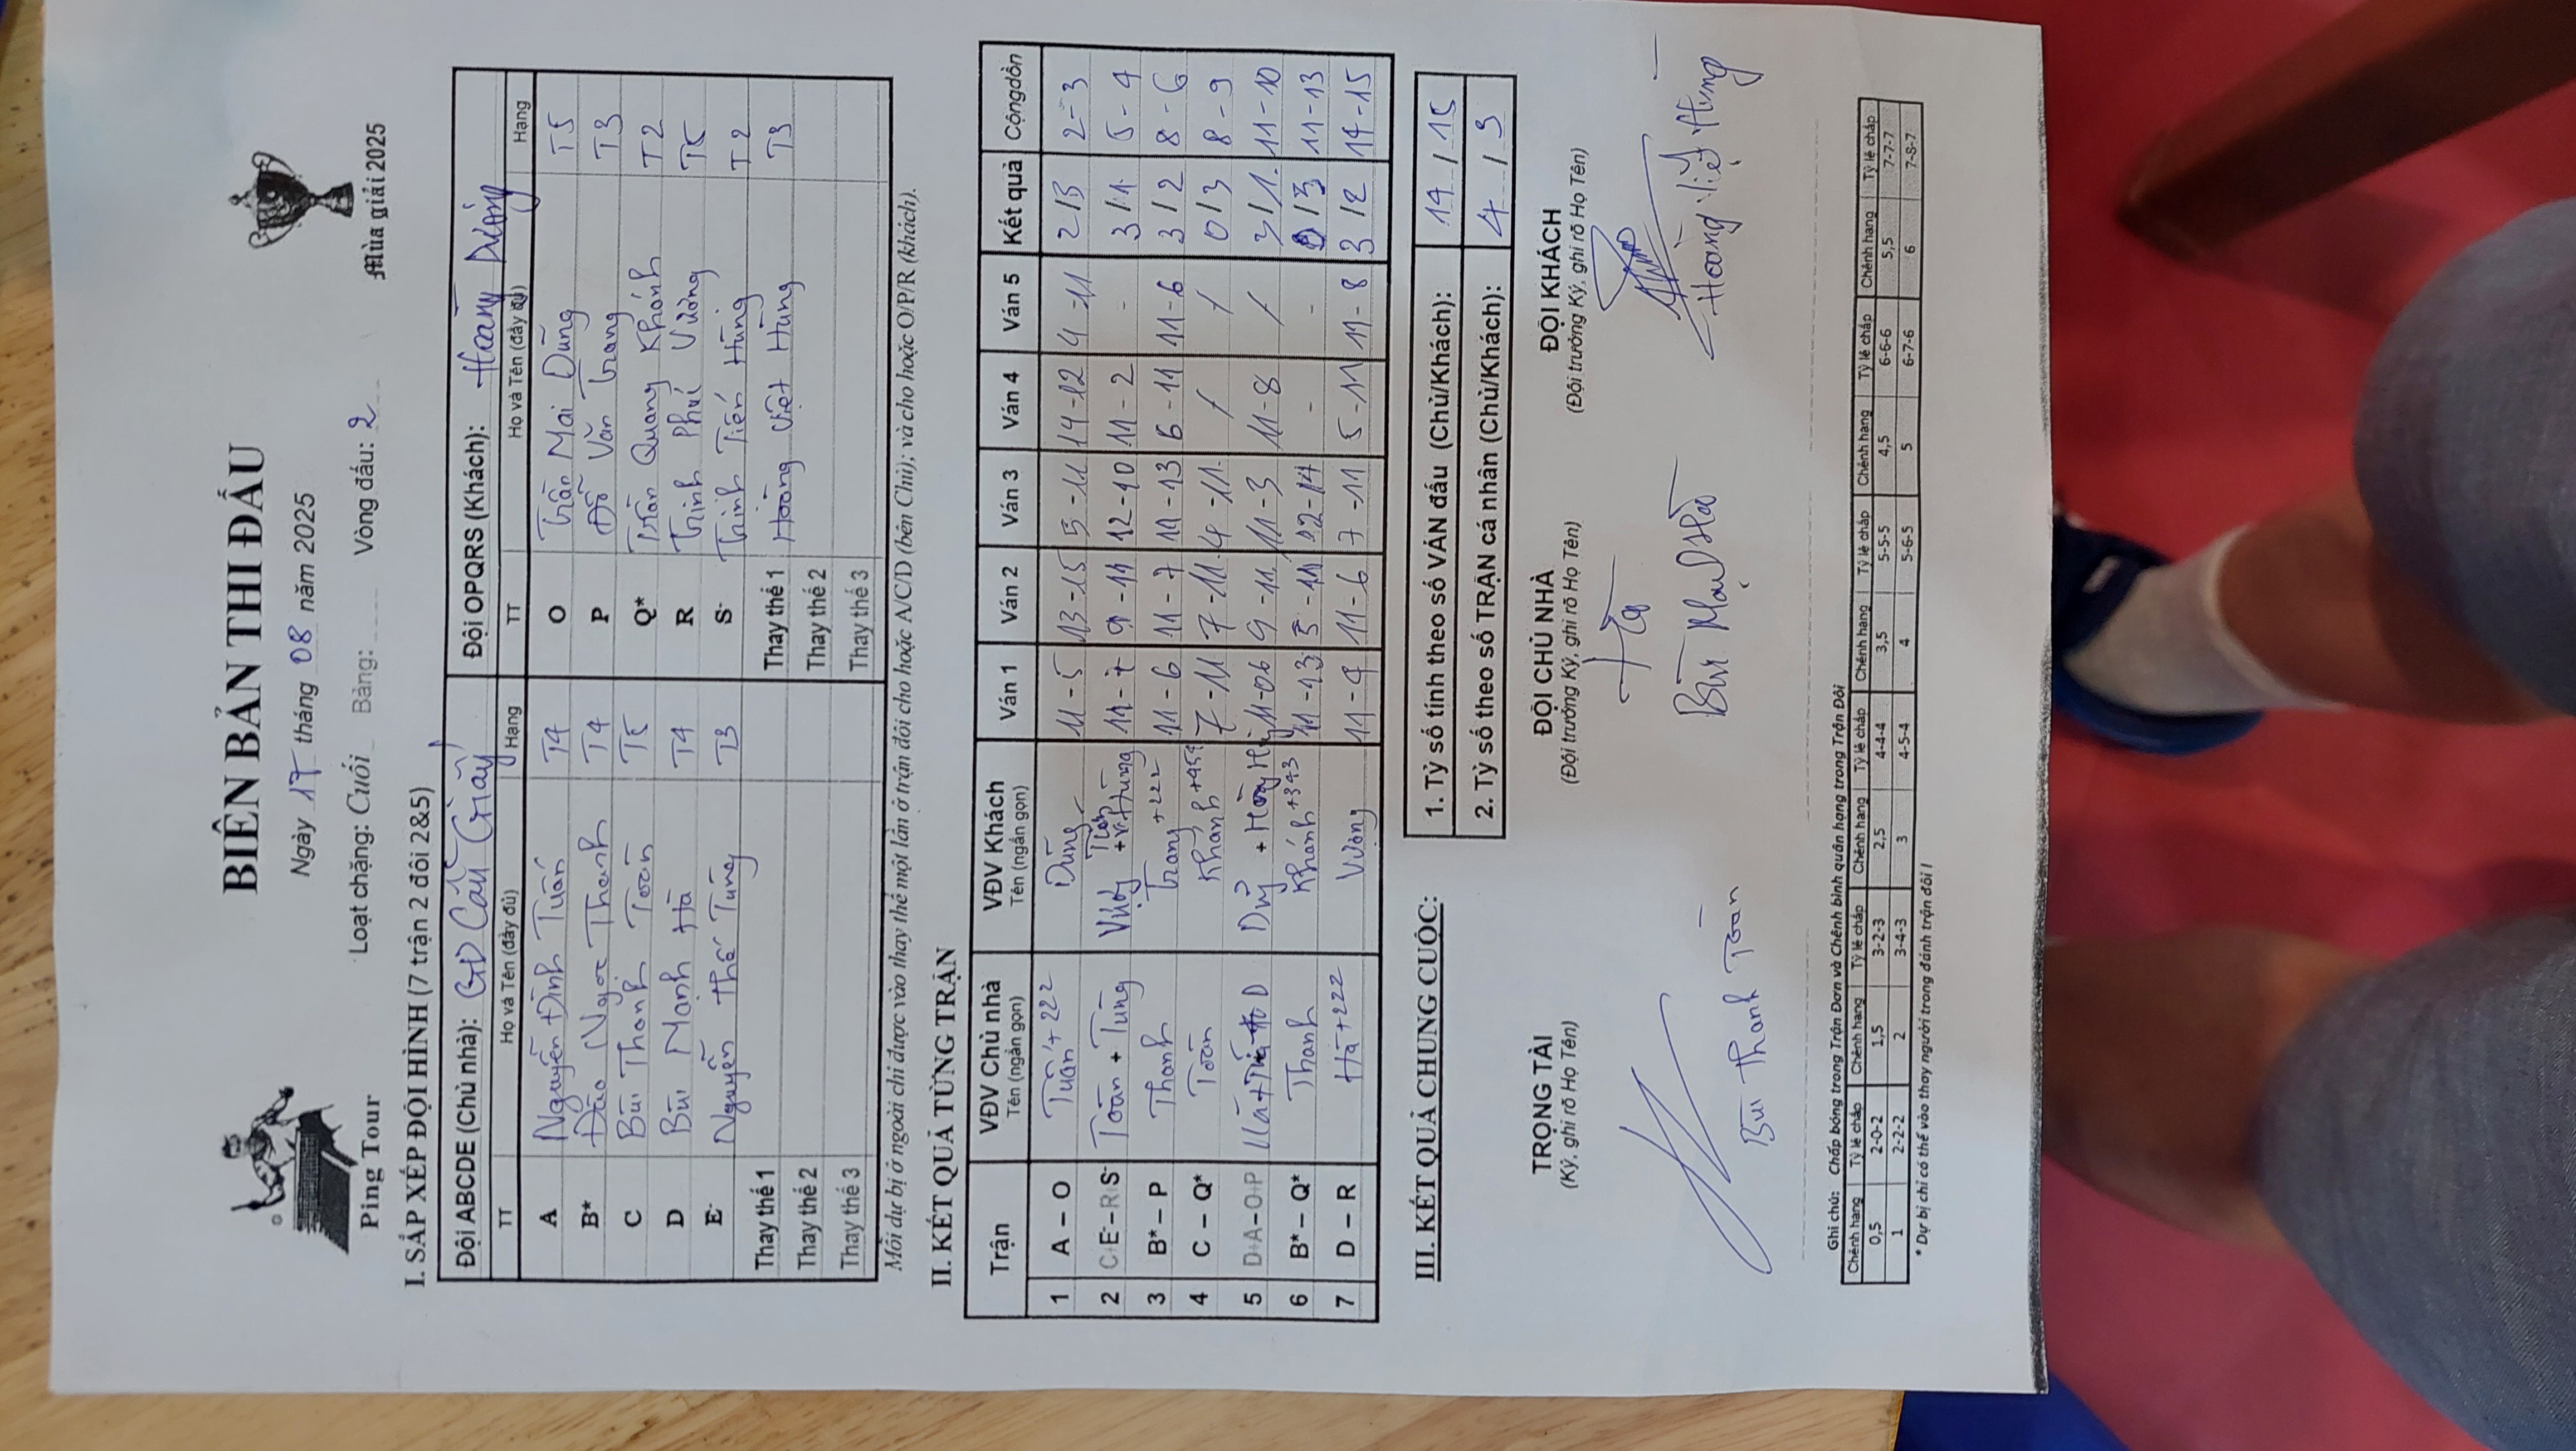 Ping Tour
BIÊN BẢN THI ĐẤU
Ngày 17 tháng 08 năm 2025
Loạt chặng: Cuối Bảng: Vòng đấu: 2
Mùa giải 2025
I. SẮP XẾP ĐỘI HÌNH (7 trận 2 đôi 2&5)
Đội ABCDE (Chủ nhà): GD Cầu Giấy Đội OPQRS (Khách): Hoàng Dương
TT Họ và Tên (đầy đủ) Hạng TT Họ và Tên (đầy đủ) Hạng
A Nguyễn Đình Tuấn T4 O Trần Mai Dũng T5
B* Đào Ngọc Thanh T4 P Đỗ Văn Trang T3
C Bùi Thanh Toàn T5 Q* Trần Quang Khánh T2
D Bùi Mạnh Hà T4 R Trịnh Phú Vường T5
E- Nguyễn Thế Tùng T3 S- Trịnh Tiến Hùng T2
Thay thế 1 Thay thế 1 Hoàng Việt Hùng T3
Thay thế 2 Thay thế 2
Thay thế 3 Thay thế 3
Mỗi dự bị ở ngoài chỉ được vào thay thế một lần ở trận đôi cho hoặc A/C/D (bên Chủ); và cho hoặc O/P/R (khách).
II. KẾT QUẢ TỪNG TRẬN
Trận VĐV Chủ nhà Tên (ngắn gọn) VĐV Khách Tên (ngắn gọn) Ván 1 Ván 2 Ván 3 Ván 4 Ván 5 Kết quả Cộng dồn
1 A – O Tuấn +222 Dũng 11-5 13-15 5-11 14-12 4-11 2/3 2-3
2 C+E – R+S- Toàn + Tùng 11-7 9-11 12-10 11-2 - 3/1 5-4
3 B* – P Thanh Trang +222 11-6 11-7 11-13 6-11 11-6 3/2 8-6
4 C – Q* Toàn Khánh 7-11 7-11 4-11 / / 0/3 8-9
5 D+A – O+P 11-06 9-11 11-3 11-8 / 3/1 11-10
6 B* – Q* Thanh Khánh +343 11-13 5-11 12-14 - - 0/3 11-13
7 D – R Hà +222 Vường 11-9 11-6 7-11 5-11 11-8 3/2 14-15
III. KẾT QUẢ CHUNG CUỘC:
1. Tỷ số tính theo số VÁN đấu (Chủ/Khách): 14/15
2. Tỷ số theo số TRẬN cá nhân (Chủ/Khách): 4/3
TRỌNG TÀI ĐỘI CHỦ NHÀ ĐỘI KHÁCH
(Ký, ghi rõ Họ Tên) (Đội trưởng Ký, ghi rõ Họ Tên) (Đội trưởng Ký, ghi rõ Họ Tên)
Hà
Bùi Thanh Toàn Bùi Mạnh Hà Hoàng Việt Hưng
Ghi chú: Chấp bóng trong Trận Đơn và Chênh bình quân hạng trong Trận Đôi
Chênh hạng Tỷ lệ chấp Chênh hạng Tỷ lệ chấp Chênh hạng Tỷ lệ chấp Chênh hạng Tỷ lệ chấp Chênh hạng Tỷ lệ chấp Chênh hạng Tỷ lệ chấp
0,5 2-0-2 1,5 3-2-3 2,5 4-4-4 3,5 5-5-5 4,5 6-6-6 5,5 7-7-7
1 2-2-2 2 3-4-3 3 4-5-4 4 5-6-5 5 6-7-6 6 7-8-7
* Dự bị chỉ có thể vào thay người trong đánh trận đôi !